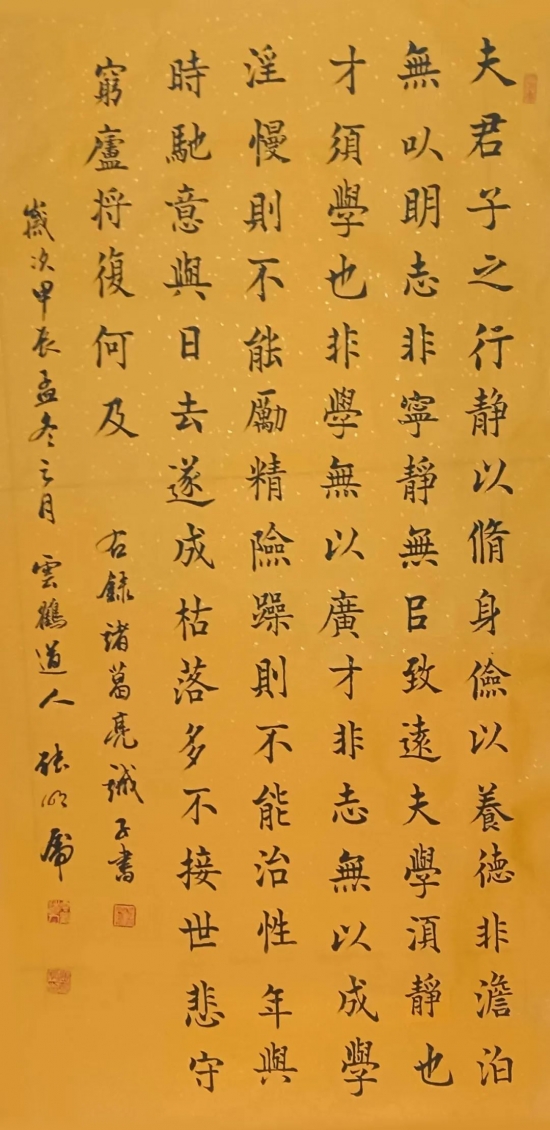 夫君子之行静以脩身儉以養德非澹泊
無㕥眀志非寧靜無㠯致遠夫學湏靜也
才須學也非學無以廣才非志無以成學
淫慢則不能勵精險躁則不能治性年與
時馳意與日去遂成枯落多不接世悲守
窮廬将復何及
右録諸葛亮誡子書
歲次甲辰孟冬之月 雲鶴道人 張